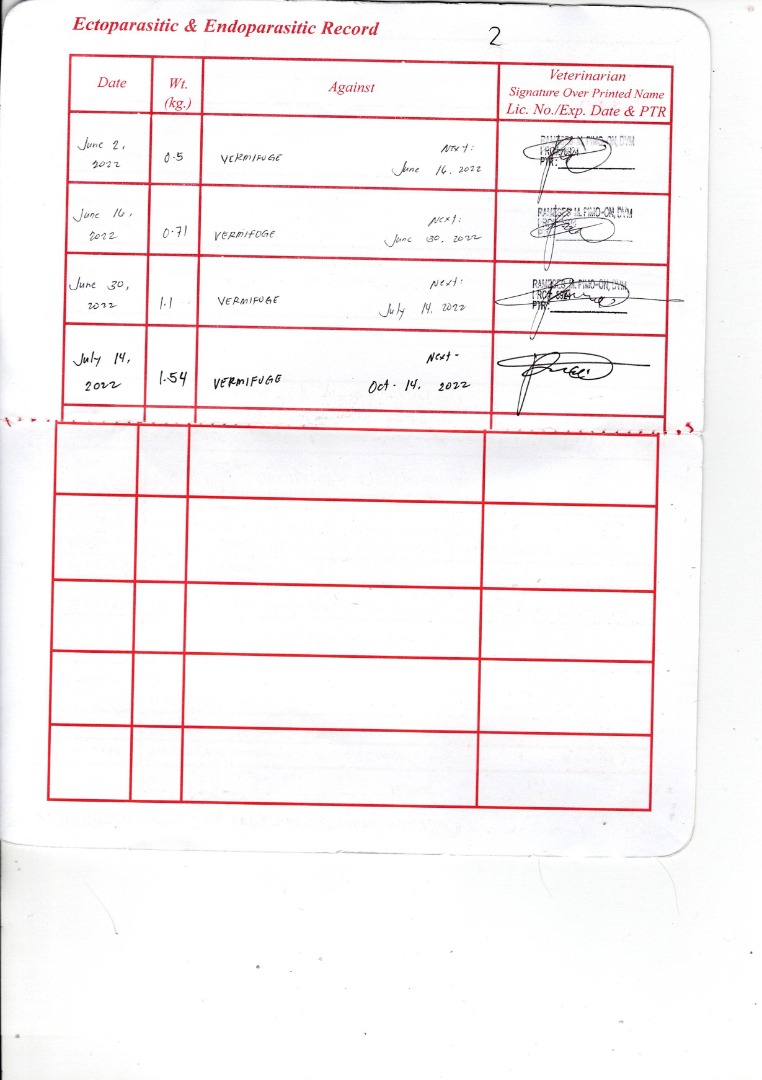 Ectoparasitic & Endoparasitic Record
2
Date
Wt.
(kg.)
Against
Veterinarian
Signature Over Printed Name
Lic. No./Exp. Date & PTR
June 2,
2022
0.5
VERMIFUGE
Next:
June 16, 2022
DVM
PTR:
June 16,
2022
0.71
VERMIFUGE
Next:
June 30, 2022
RAMESES M. PIMO-ON, DVM
June 30,
2022
1.1
VERMIFUGE
Next:
July 14, 2022
RAMESES M. PIMO-ON, DVM
PTR:
July 14,
2022
1.54
VERMIFUGE
Next -
Oct - 14, 2022